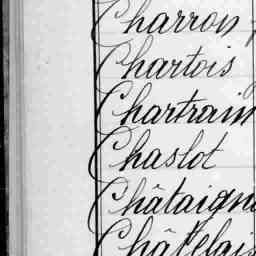 Charron
Chartois
Chartrain
Chaslot
Châtaign
Châtelai